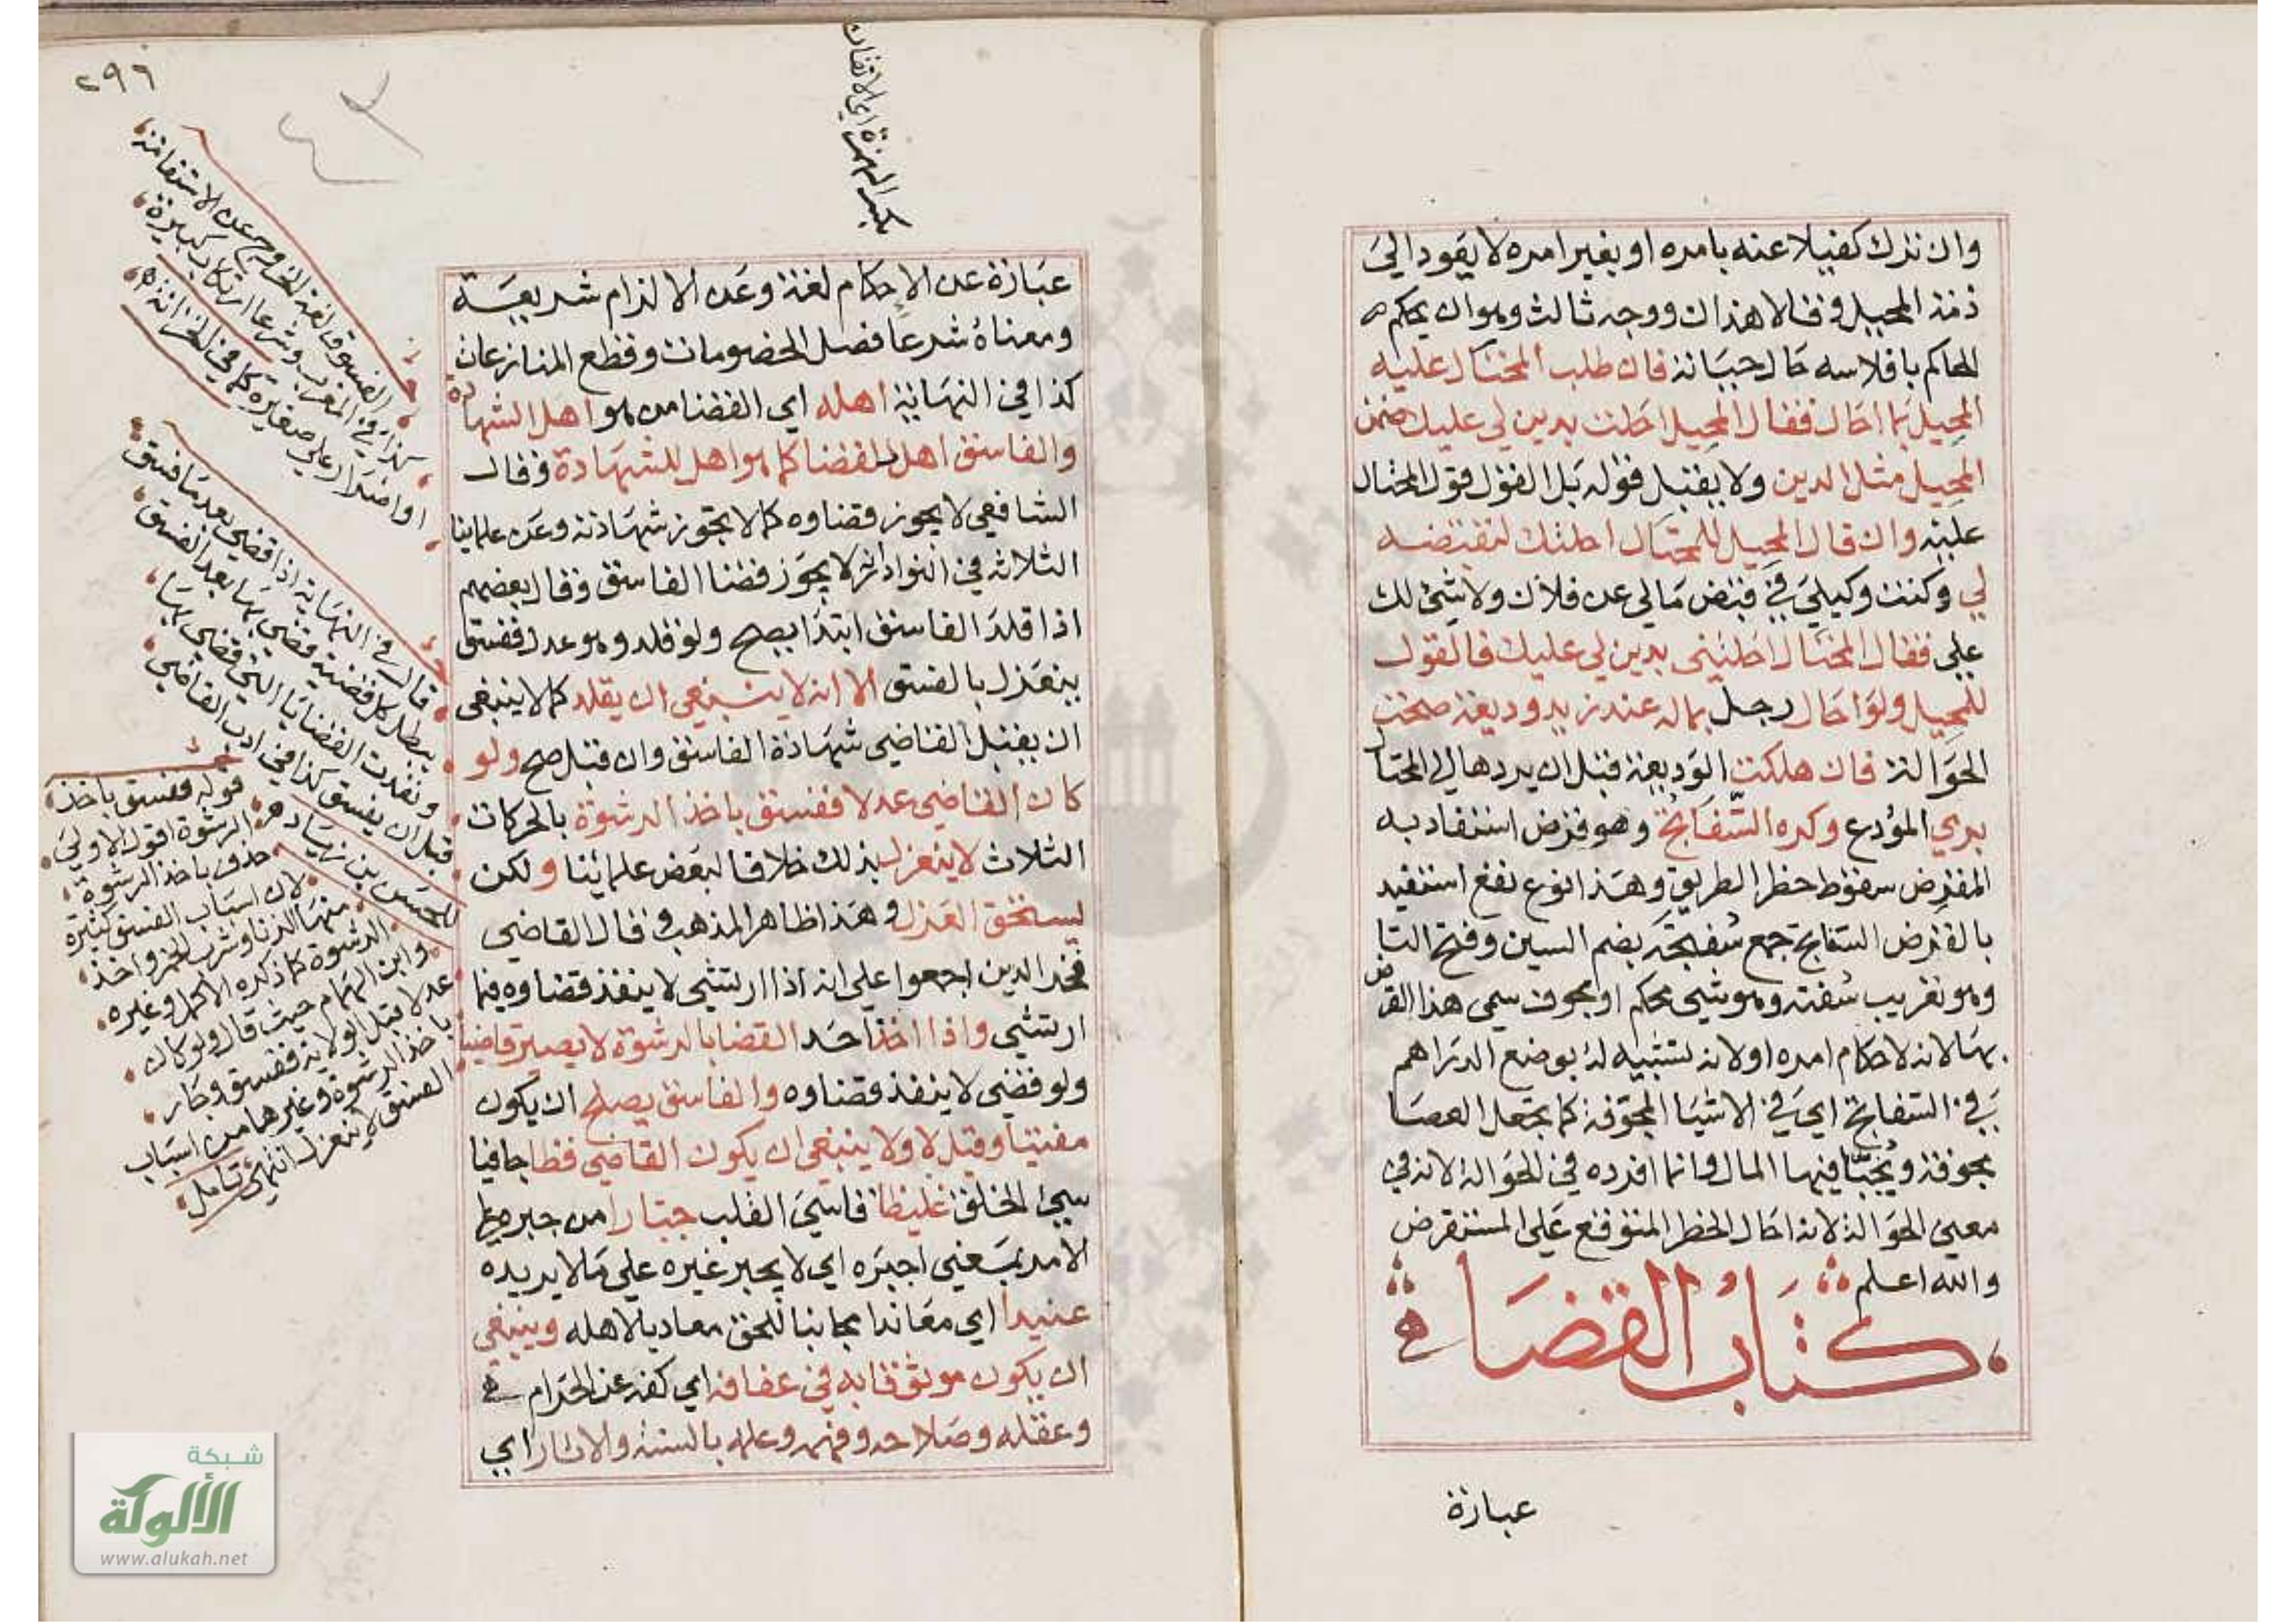 وان ترك كفيلا عنه بامره او بغير امره لا يعود الى
ذمة المحيل وقالا هذان ووجه ثالث وهو ان يحكم
الحاكم بافلاسه حال حياته فان طلب المحتال عليه
المحيل بما احال فقال المحيل احلت بدين لي عليك ضمن
المحيل مثل الدين ولا يقبل قوله بل القول قول المحتال
عليه وان قال المحيل للمحتال احلتك لتقبضه
لي وكنت وكيلي في قبض مالي عن فلان ولا شئ لك
علي فقال المحتال احلتني بدين لي عليك فالقول
للمحيل ولو احال رجل بماله عند زيد وديعة صحت
الحوالة فان هلكت الوديعة قبل ان يردها الى المحتال
بري المودع وكره السفاتج وهو قرض استفاد به
المقرض سقوط خطر الطريق وهذا نوع نفع استفيد
بالقرض السفاتج جمع سفتجة بضم السين وفتح التا
وهو تعريب سفته وهو شئ محكم او مجوف سمي هذا القرض
بها لانه لاحكام امره او لانه تشبيه له بوضع الدراهم
في السفاتج اي في الاشيا المجوفة كما تجعل العصا
مجوفة ويخبا فيها المال وانما افرده في الحوالة لانه في
معنى الحوالة لانه احال الخطر المتوقع على المستقرض
والله اعلم
كتاب القضا
عبارة
٢٩٦
بكسر الهمزة اي الاتقان
عبارة عن الاحكام لغة وعن الالزام شريعة
ومعناه شرعا فصل الخصومات وقطع المنازعات
كذا في النهاية اهله اي القضا من هو اهل الشهادة
والفاسق اهل للقضا كما هو اهل للشهادة وقال
الشافعي لا يجوز قضاوه كما لا تجوز شهادته وعن علماينا
الثلاثة في النوادر لا يجوز قضا الفاسق وقال بعضهم
اذا قلد الفاسق ابتدا يصح ولو قلد وهو عدل ففسق
ينعزل بالفسق الا انه لا ينبغي ان يقلد كما لا ينبغي
ان يقبل القاضي شهادة الفاسق وان قبل صح ولو
كان القاضي عدلا ففسق باخذ الرشوة بالحركات
الثلاث لا ينعزل بذلك خلافا لبعض علمائنا ولكن
يستحق العزل وهذا ظاهر المذهب وقال القاضي
فخر الدين اجمعوا على انه اذا ارتشى لا ينفذ قضاوه فيما
ارتشى واذا اخذ احد القضا بالرشوة لا يصير قاضيا
ولو قضى لا ينفذ قضاوه والفاسق يصلح ان يكون
مفتيا وقيل لا ولا ينبغي ان يكون القاضي فظا جافيا
سيئ الخلق غليظا قاسي القلب جبارا من جبر على
الامر بمعنى اجبره اي لا يجبر غيره على ما لا يريده
عنيدا اي معاندا مجانبا للحق معاديا لاهله وينبغي
ان يكون موثوقا به في عفافه اي كفه عن الحرام
وعقله وصلاحه وفهمه وعلمه بالسنة والاثار اي
الفسوق لغة الخروج عن الاستقامة
هذا في المغرب وشرعا ارتكاب كبيرة
او اصرار على صغيرة كما في الخزانة
قال في النهاية اذا قضى بعد ما فسق
يبطل كل قضية قضى بها بعد الفسق
ونفذت القضايا التي قضى بها
قبل ان يفسق كذا في ادب القاضي
للحسن بن زياد
قوله ففسق باخذ
الرشوة اقول الاولى
حذف باخذ الرشوة
لان اسباب الفسق كثيرة
منها الزنا وشرب الخمر واخذ
الرشوة كما ذكره الاكمل وغيره
وابن الهمام حيث قال ولو كان
عدلا قبل الولاية ففسق وجار
باخذ الرشوة وغيرها من اسباب
الفسق لا ينعزل انتهى تامل
شبكة
الألوكة
www.alukah.net